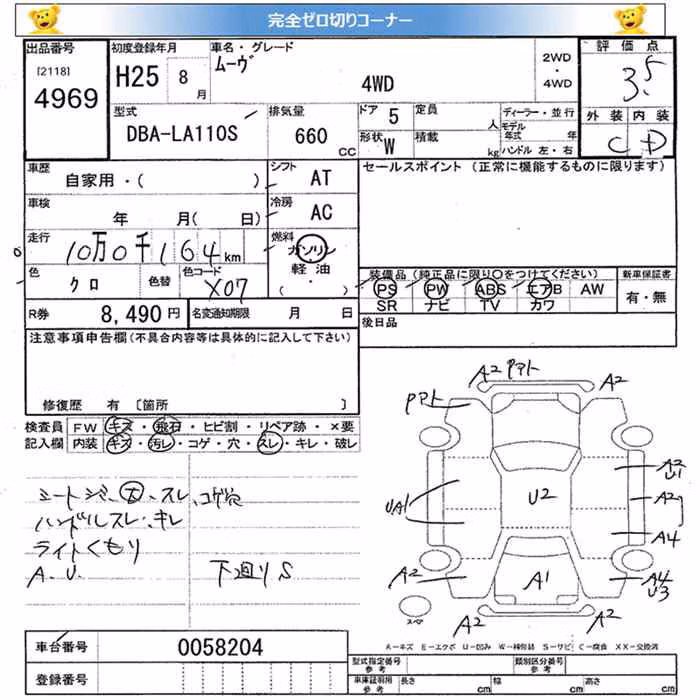 完全ゼロ切りコーナー
出品番号 初度登録年月 車名・グレード 2WD・4WD 評価点
[2118] 4969 H25 8月 ムーヴ 4WD 3.5
型式 DBA-LA110S 排気量 660 CC ドア 5 定員 人 ディーラー・並行 外装 内装
形状 W 積載 kg モデル年式 年 C D
ハンドル 左・右
車歴 自家用・( ) シフト AT セールスポイント (正常に機能するものに限ります)
車検 年 月( 日) 冷房 AC
走行 10万0千164km 燃料 ガソリン 軽油 ( ・ )
色 クロ 色替 色コード X07 装備品 (純正品に限り○をつけてください) 新車保証書
PS PW ABS エアB AW 有・無
SR ナビ TV カワ
R券 8,490円 名変通知期限 月 日 後日品
注意事項申告欄(不具合内容等は具体的に記入して下さい)
修復歴 有 [箇所 ]
検査員 FW キズ・飛石・ヒビ割・リペア跡・×要
記入欄 内装 キズ・汚レ・コゲ・穴・スレ・キレ・破レ
シートシミ、大、スレ、コゲ穴
ハンドルスレ・キレ
ライトくもり
A.U. 下廻りS
A2 Pアト A2
Pアト
A2 U1
UA1 U2 A2
A4
A2 A1 A4 U3
スペア A2 A2
A-キズ E-エクボ U-凹み W-補修跡 S-サビ C-腐食 XX-交換済
車台番号 0058204
登録番号
型式指定番号 参考 類別区分番号 参考
車庫証明用 参考 長さ cm 幅 cm 高さ cm